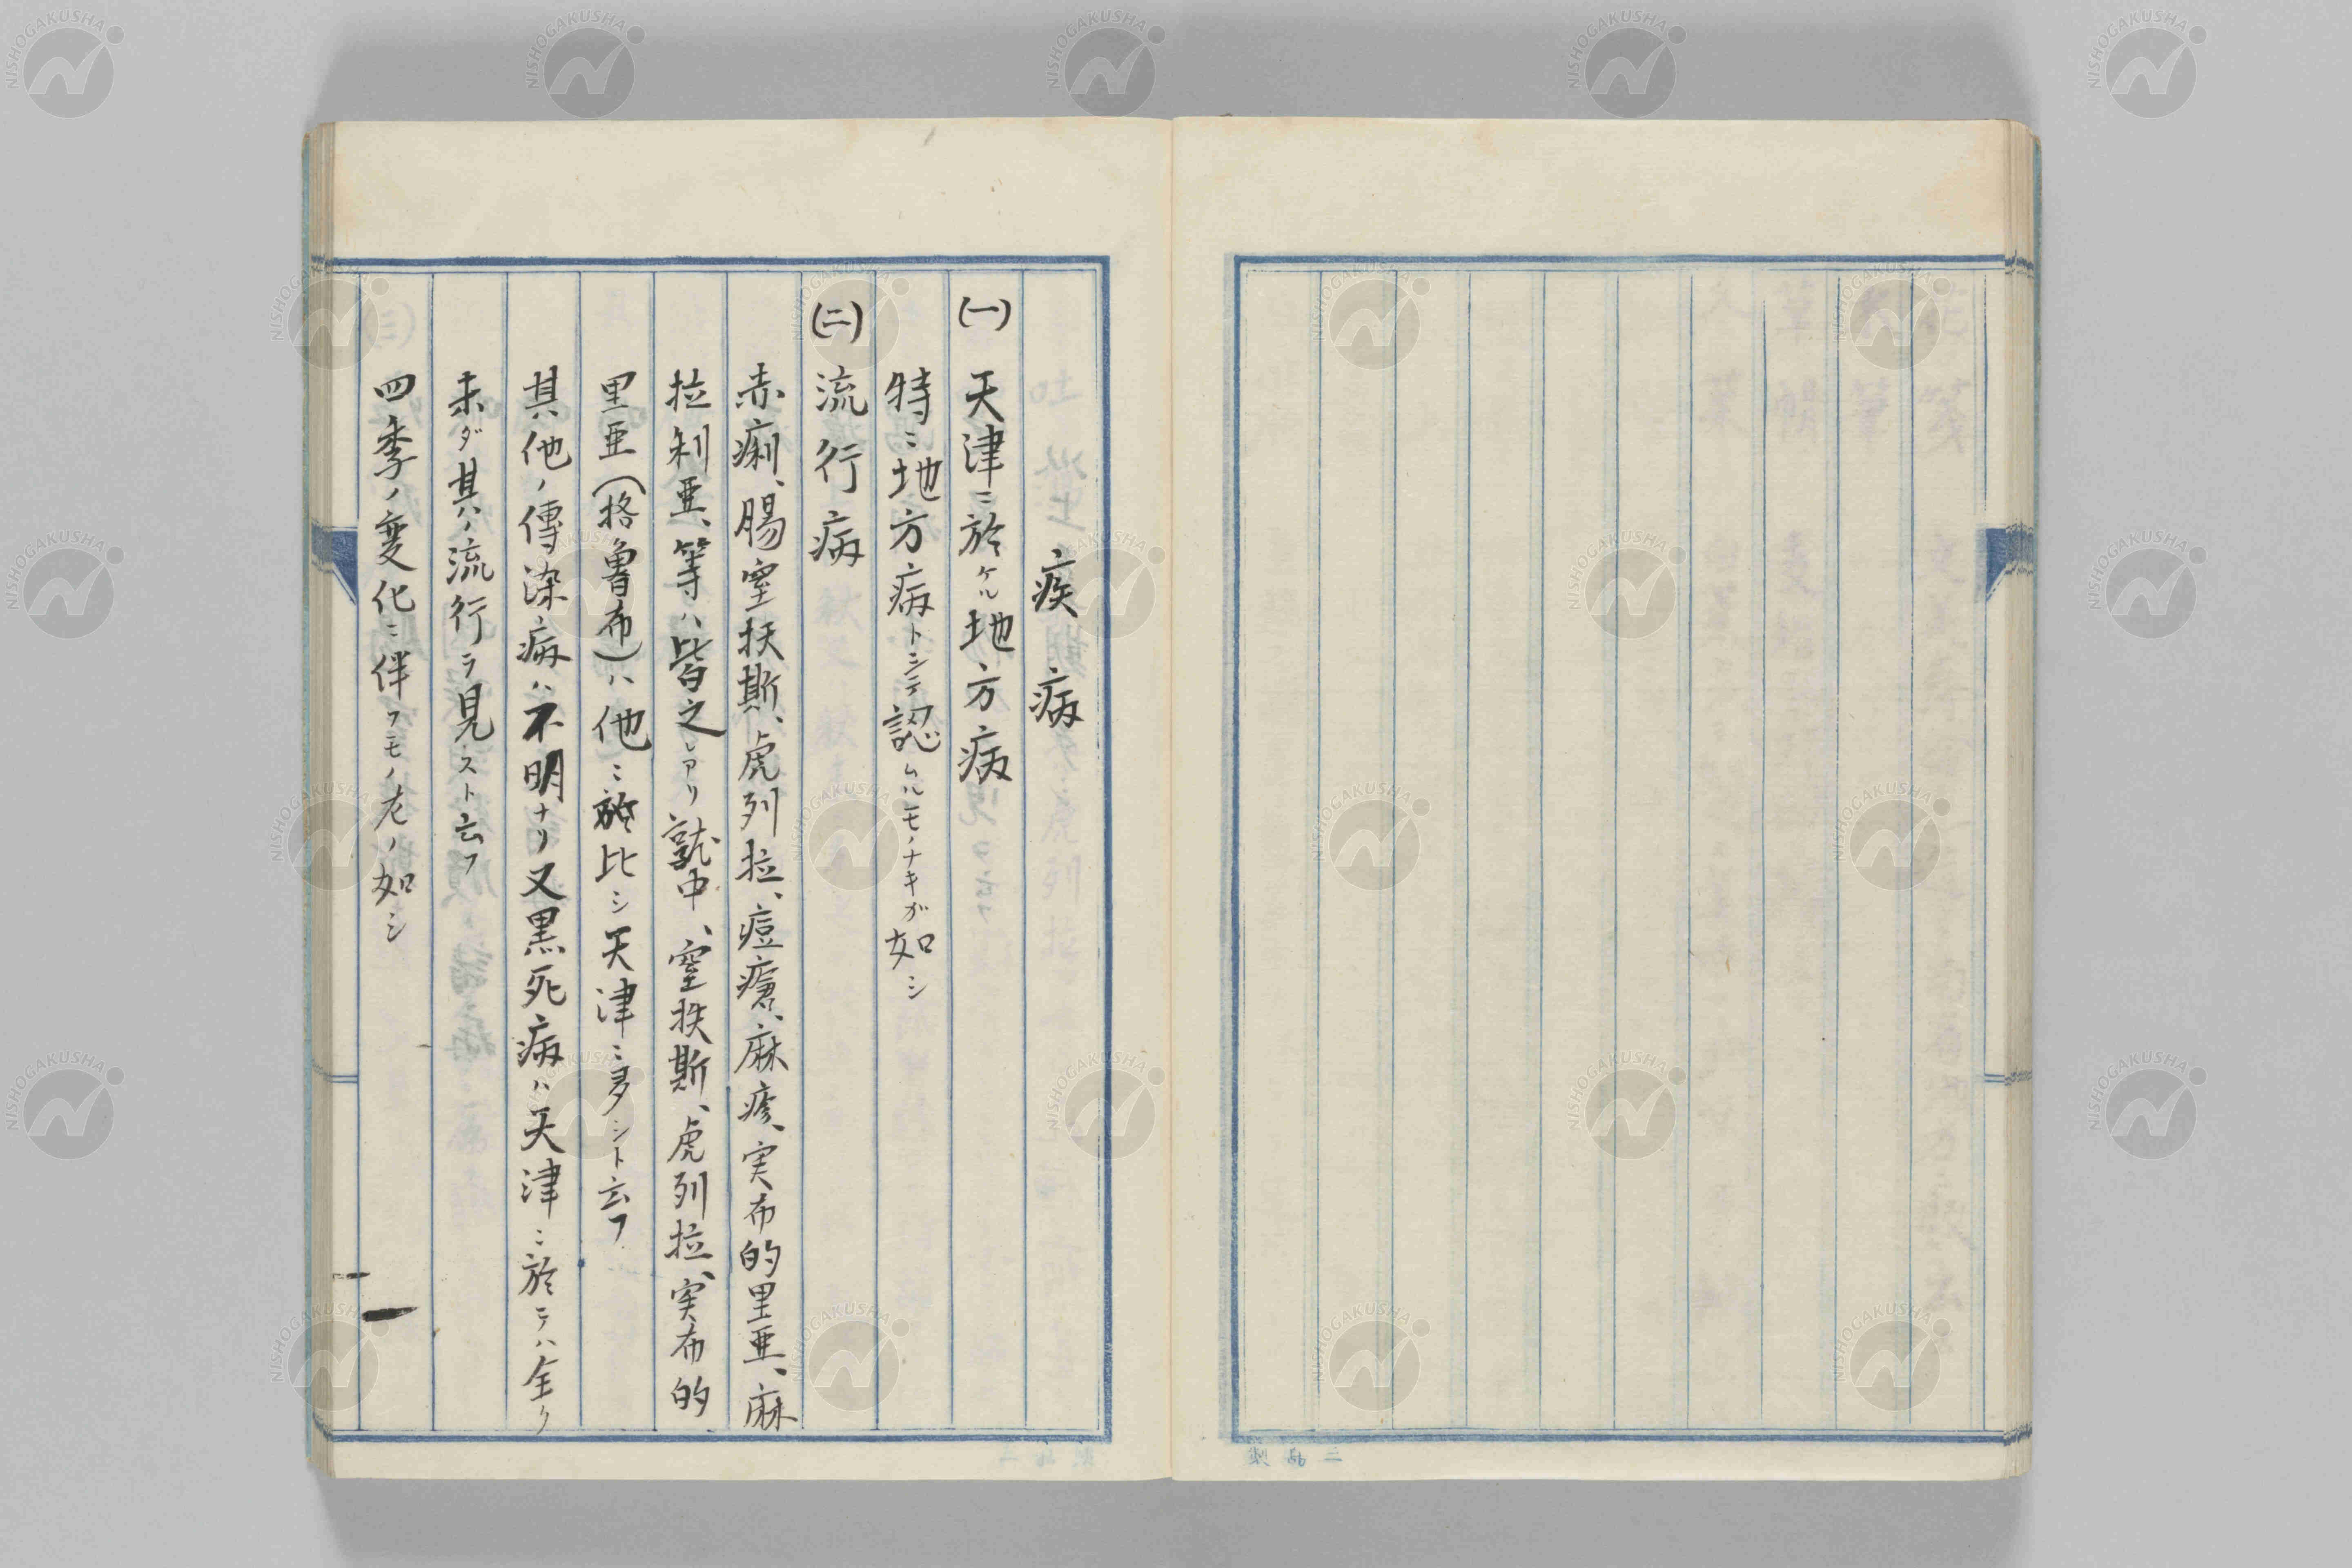 疾病
(一) 天津ニ於ケル地方病
特ニ地方病トシテ認ムルモノナキガ如シ
(二) 流行病
赤痢、腸窒扶斯、虎列拉、痘瘡、麻疹、実布的里亜、麻
拉利亜、等ハ皆之レアリ就中、窒扶斯、虎列拉、実布的
里亜(格魯布)ハ他ニ於比シ天津ニ多シト云フ
其他ノ傳染病ハ不明ナリ又黒死病ハ天津ニ於テハ全ク
未ダ其ノ流行ヲ見スト云フ
四季ノ変化ニ伴フモノ左ノ如シ
NISHOGAKUSHA